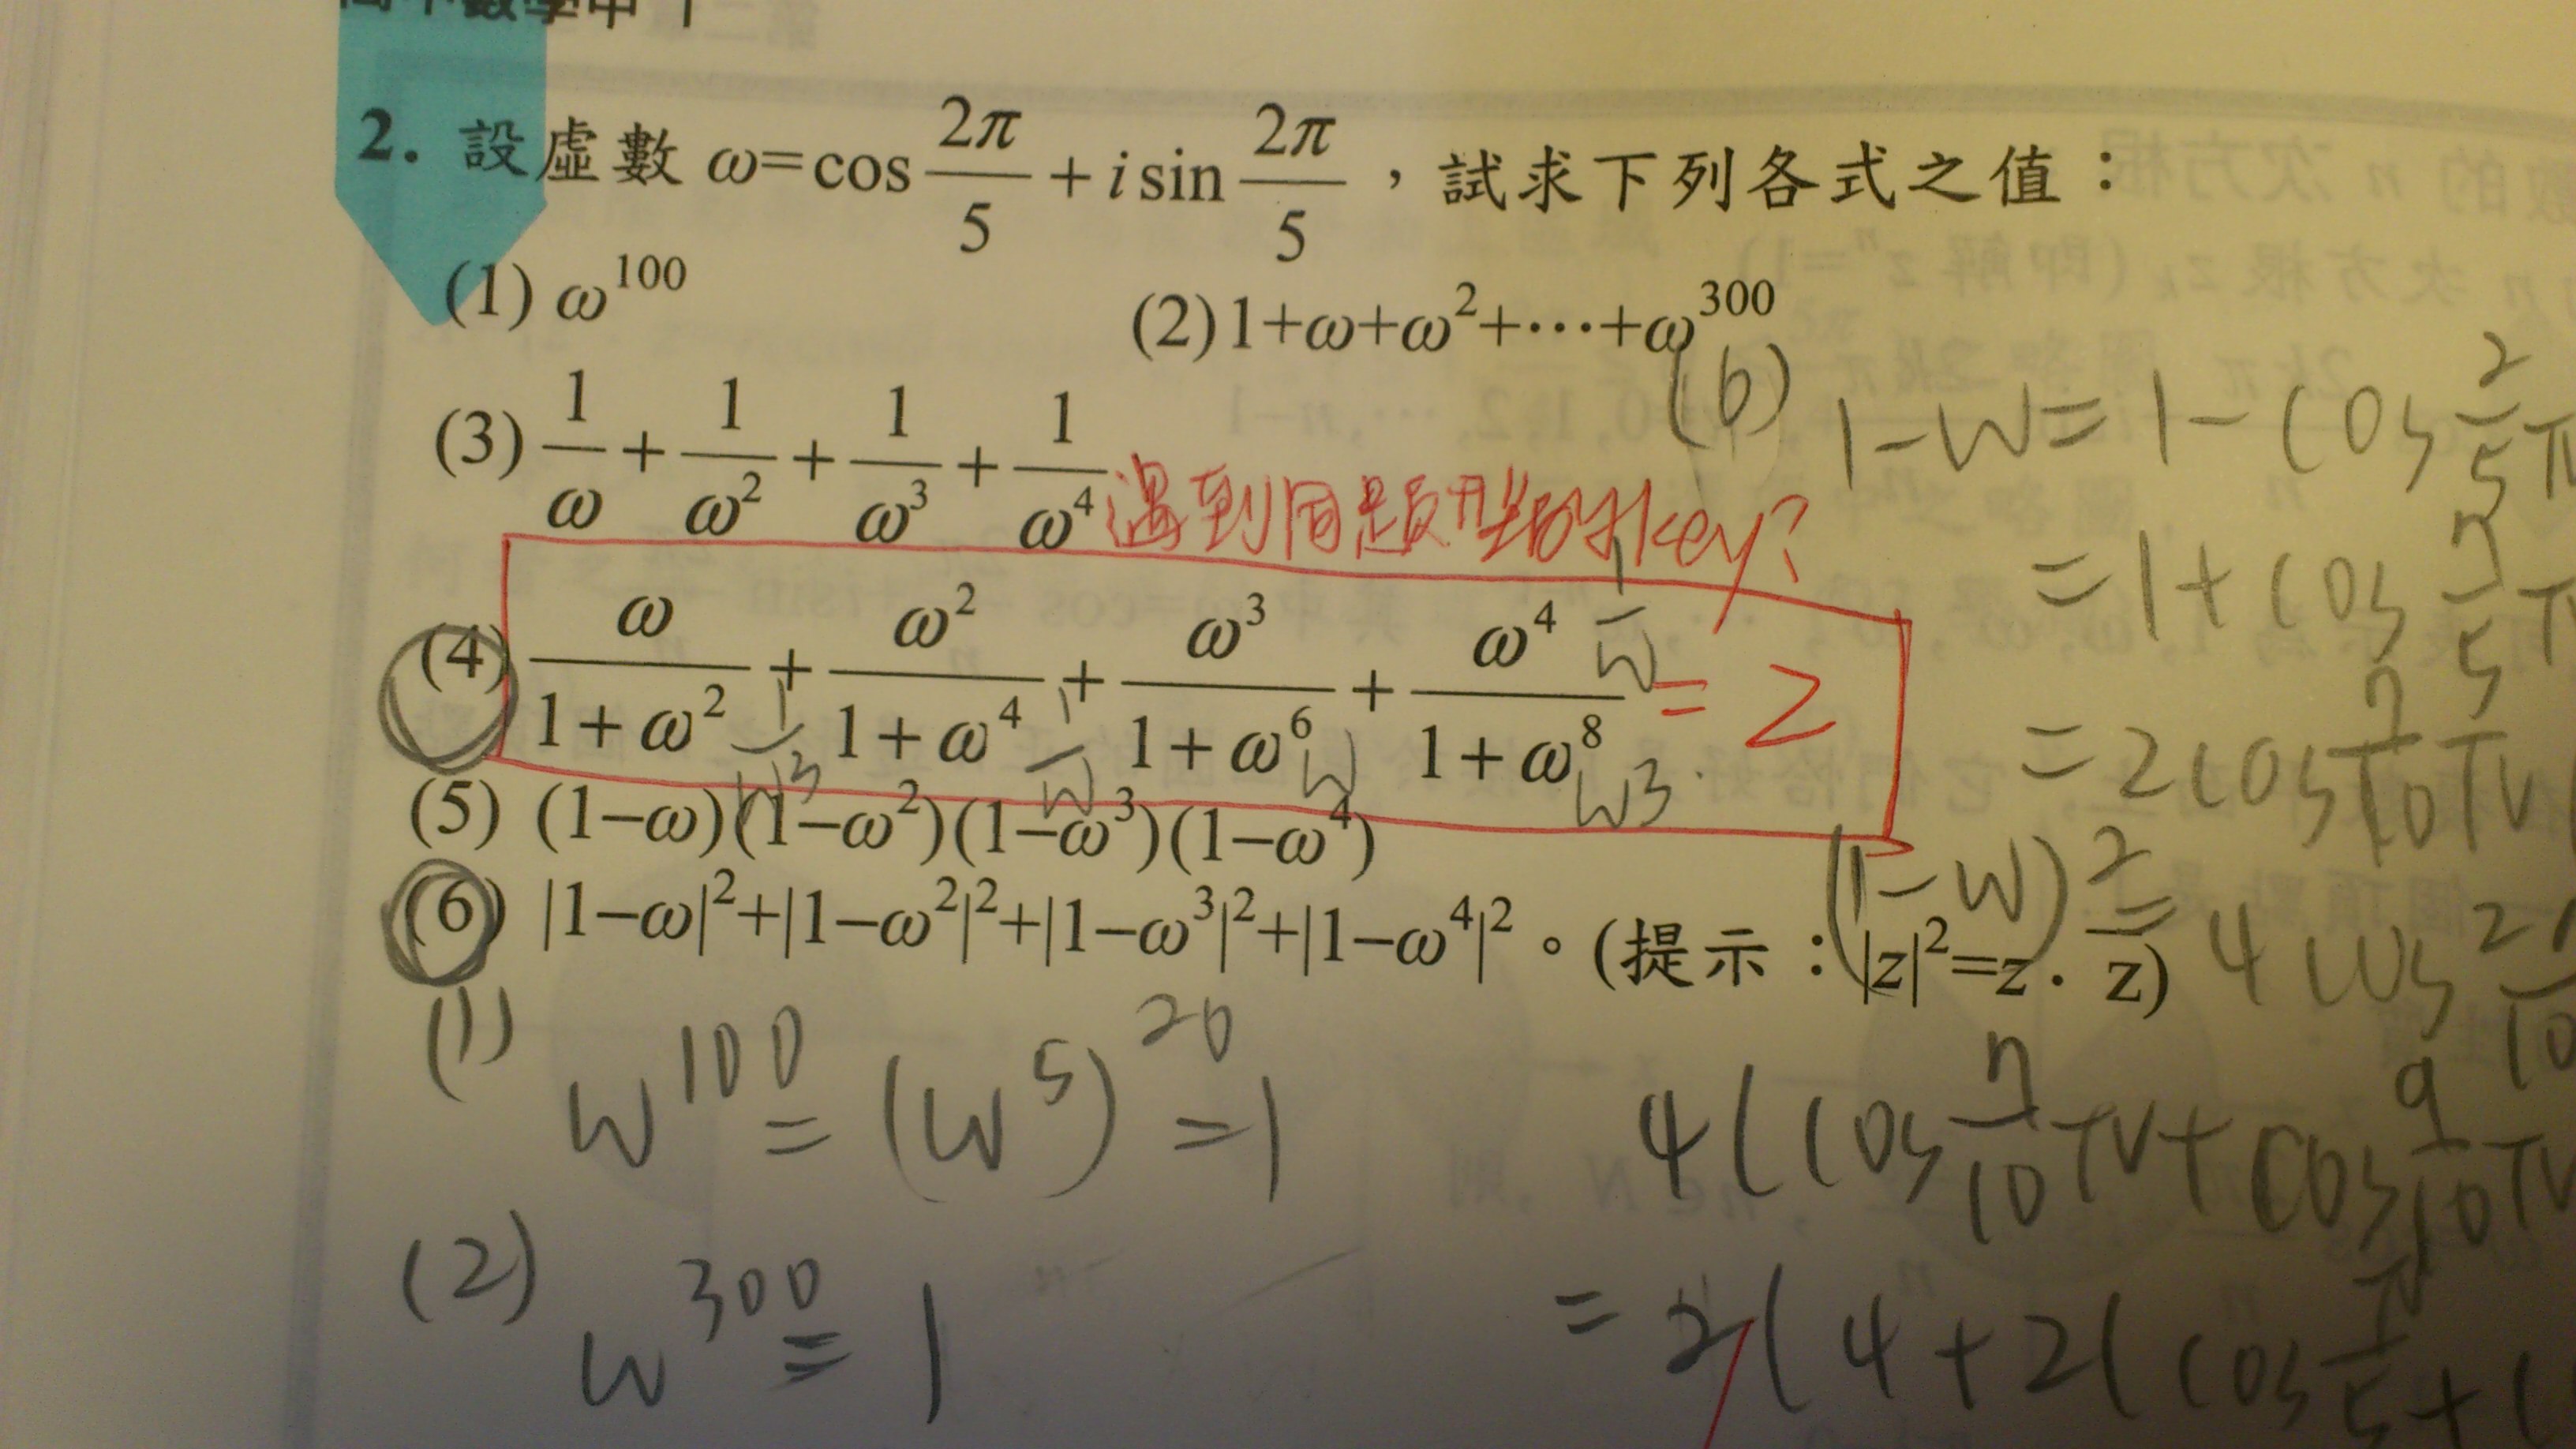 2. 設虛數 ω=cos 2π/5 + i sin 2π/5，試求下列各式之值：
(1) ω^100 (2) 1+ω+ω^2+⋯+ω^300
(3) 1/ω + 1/ω^2 + 1/ω^3 + 1/ω^4
遇到同題型的key?
(4) ω/(1+ω^2) + ω^2/(1+ω^4) + ω^3/(1+ω^6) + ω^4/(1+ω^8) = 2
1/W3 1/W W 1/W W3
(5) (1−ω)(1−ω^2)(1−ω^3)(1−ω^4)
(6) |1−ω|^2+|1−ω^2|^2+|1−ω^3|^2+|1−ω^4|^2。(提示：|z|^2=z．z̅)
(1)
W^100 = (W^5)^20 = 1
(2)
W^300 = 1
(6)
1−W = 1−cos 2/5 π
= 1+cos 7/5 π
= 2cos 7/10 π
(1−W)^2 = 4cos^2
4(cos 7/10 π + cos 9/10 π
= 2(4+2(cos π/5 +